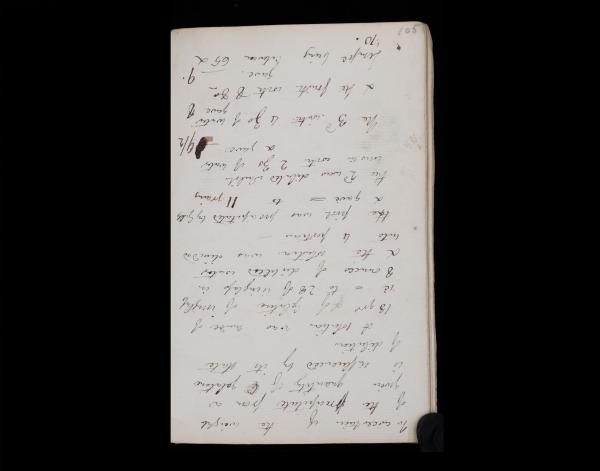 105
To ascertain if the weight
of the precipitate from a
given quantity of gelatine
is influenced by its state
of dilution
A solution was made of
13 grs of gelatine of
ie = to 28 of isinglass in
8 ounces of distilled water
& the solution was divided
into 4 portions —
the first was precipitated by galls
& gave = to 11 grains
the 2d was diluted
with 2 of water
& gave — 9 1/2
The 3d with 4 of water
gave 8
& the fourth with 8
gave 9.
being between 65 &
70.